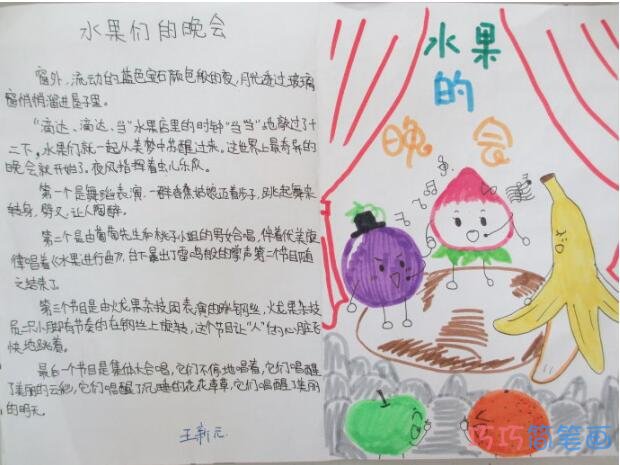 水果们的晚会
窗外,流动的蓝色宝石颜色般的夜,月花透过玻璃
窗悄悄溜进屋子里。
"滴达、滴达、当"水果店里的时钟"当当"地敲过了十
二下,水果们就一起从美梦中苏醒过来。这世界上最奇异的
晚会就开始了。夜风指挥着虫儿乐队。
第一个是舞蹈表演,一群香蕉姑娘迈着步子,跳起舞来
转身,劈叉,让人陶醉。
第二个是由葡萄先生和桃子小姐的男女合唱,伴着优美旋
律唱着《水果进行曲》,台下暴出了雷鸣般的掌声第二个节目随
之结束了
第三个节目是由火龙果杂技团表演的踩钢丝,火龙果杂技
员二只小脚有节奏的在钢丝上旋转,这个节目让"人"们的心脏飞
快地跳着。
最后一个节目是集体大合唱,它们不停地唱着,它们唱醒
了美丽的云彩,它们唱醒了沉睡的花花草草,它们唱醒了美丽
的明天。
王新元
水果
的
晚会
巧巧简笔画